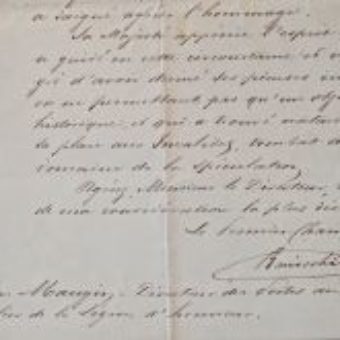 a daigné agréer l'hommage.
Sa Majesté apprécie l'esprit
a guidé en cette circonstance et v
gié d'avoir donné des preuves
en ne permettant pas qu'un obj
historique, et qui a trouvé natur
sa place aux Invalides, tombât da
domaine de la spéculation.
Agréez, Monsieur le Directeur,
de ma considération la plus dis
Le Premier Cham
Mauger, Directeur des Postes
de la Légion d'honneur.